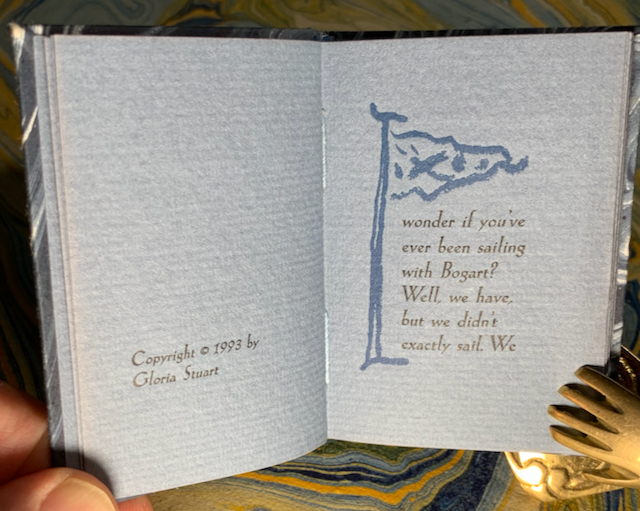 Copyright © 1993 by
Gloria Stuart
I wonder if you've
ever been sailing
with Bogart?
Well, we have,
but we didn't
exactly sail. We